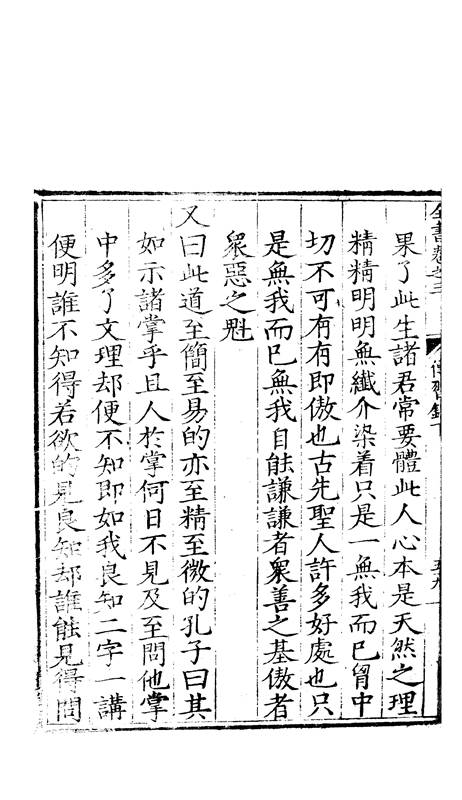 全書卷之三 傳習錄下 五九
果了此生諸君常要體此人心本是天然之理
精精明明無纖介染着只是一無我而已胷中
切不可有有即傲也古先聖人許多好處也只
是無我而已無我自能謙謙者衆善之基傲者
衆惡之魁
又曰此道至簡至易的亦至精至微的孔子曰其
如示諸掌乎且人於掌何日不見及至問他掌
中多少文理却便不知即如我良知二字一講
便明誰不知得若欲的見良知却誰能見得問